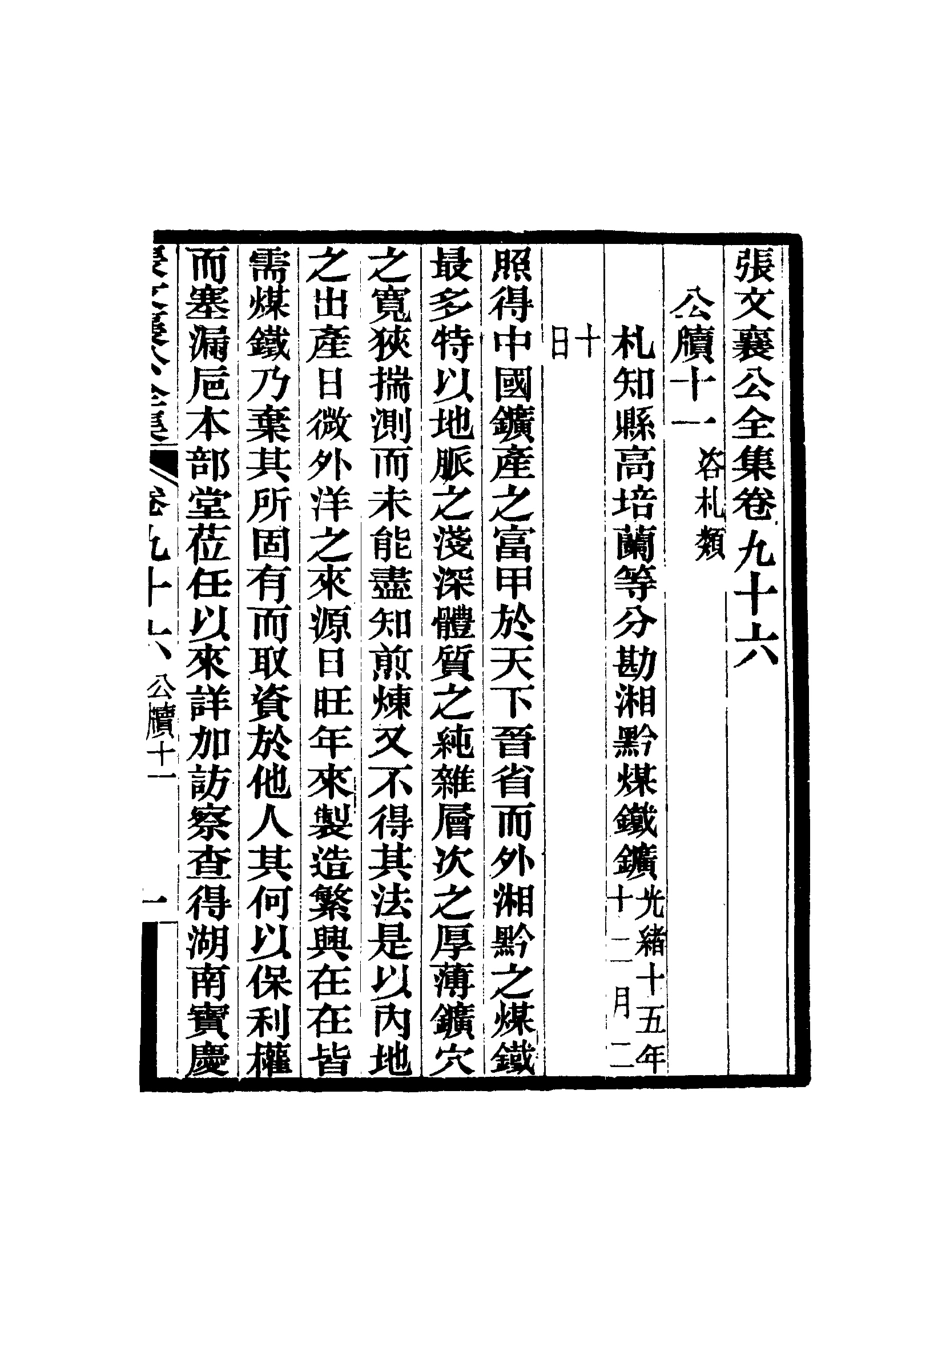 張文襄公全集卷九十六
公牘十一 咨札類
札知縣高培蘭等分勘湘黔煤鐵鑛光緒十五年十二月二
十日
照得中國鑛產之富甲於天下晉省而外湘黔之煤鐵
最多特以地脈之淺深體質之純雜層次之厚薄鑛穴
之寬狹揣測而未能盡知煎煉又不得其法是以內地
之出產日微外洋之來源日旺年來製造繁興在在皆
需煤鐵乃棄其所固有而取資於他人其何以保利權
而塞漏卮本部堂莅任以來詳加訪察查得湖南寶慶
張文襄公全集 卷九十六 公牘十一 一